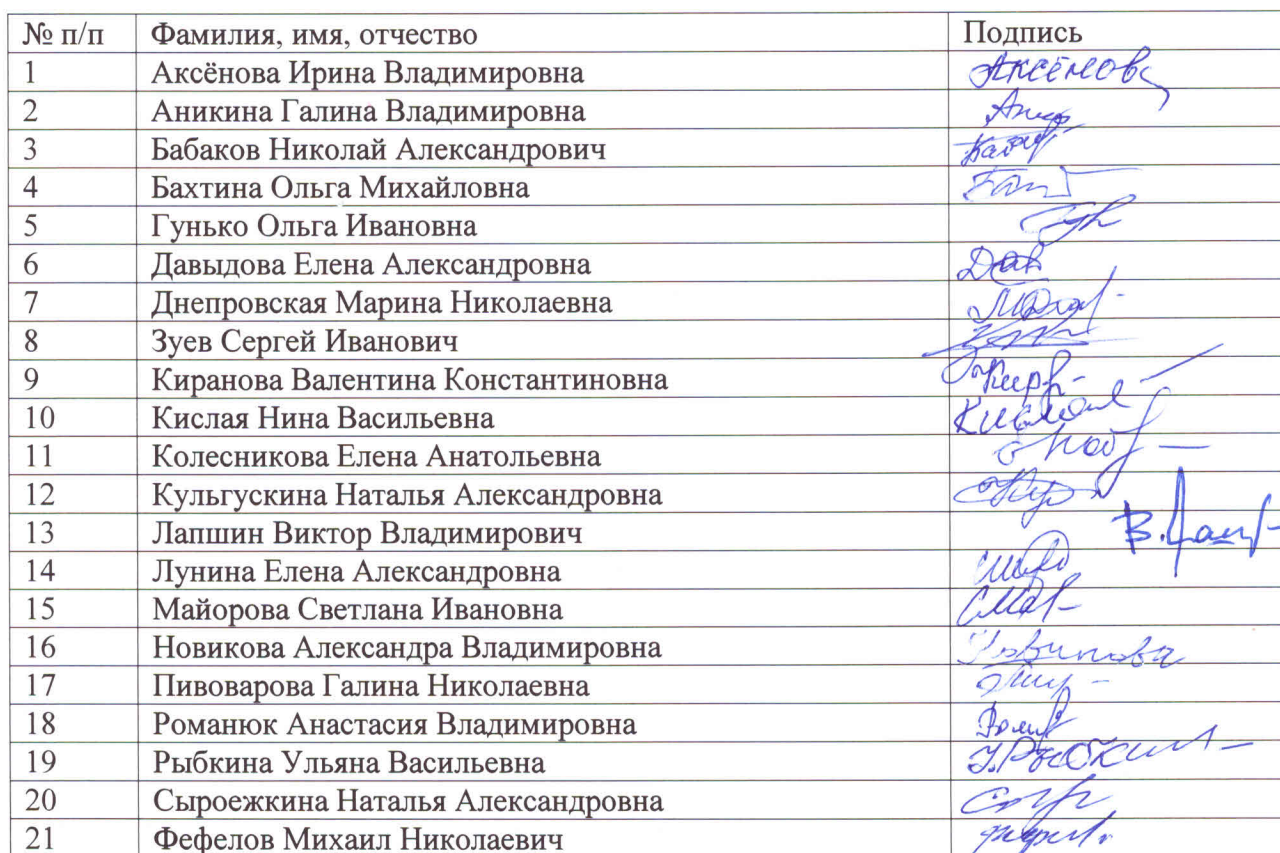 № п/п Фамилия, имя, отчество Подпись
1 Аксёнова Ирина Владимировна Аксёнова
2 Аникина Галина Владимировна
3 Бабаков Николай Александрович
4 Бахтина Ольга Михайловна
5 Гунько Ольга Ивановна
6 Давыдова Елена Александровна
7 Днепровская Марина Николаевна
8 Зуев Сергей Иванович
9 Киранова Валентина Константиновна
10 Кислая Нина Васильевна Кислая
11 Колесникова Елена Анатольевна
12 Кульгускина Наталья Александровна
13 Лапшин Виктор Владимирович
14 Лунина Елена Александровна
15 Майорова Светлана Ивановна
16 Новикова Александра Владимировна Новикова
17 Пивоварова Галина Николаевна
18 Романюк Анастасия Владимировна
19 Рыбкина Ульяна Васильевна
20 Сыроежкина Наталья Александровна
21 Фефелов Михаил Николаевич